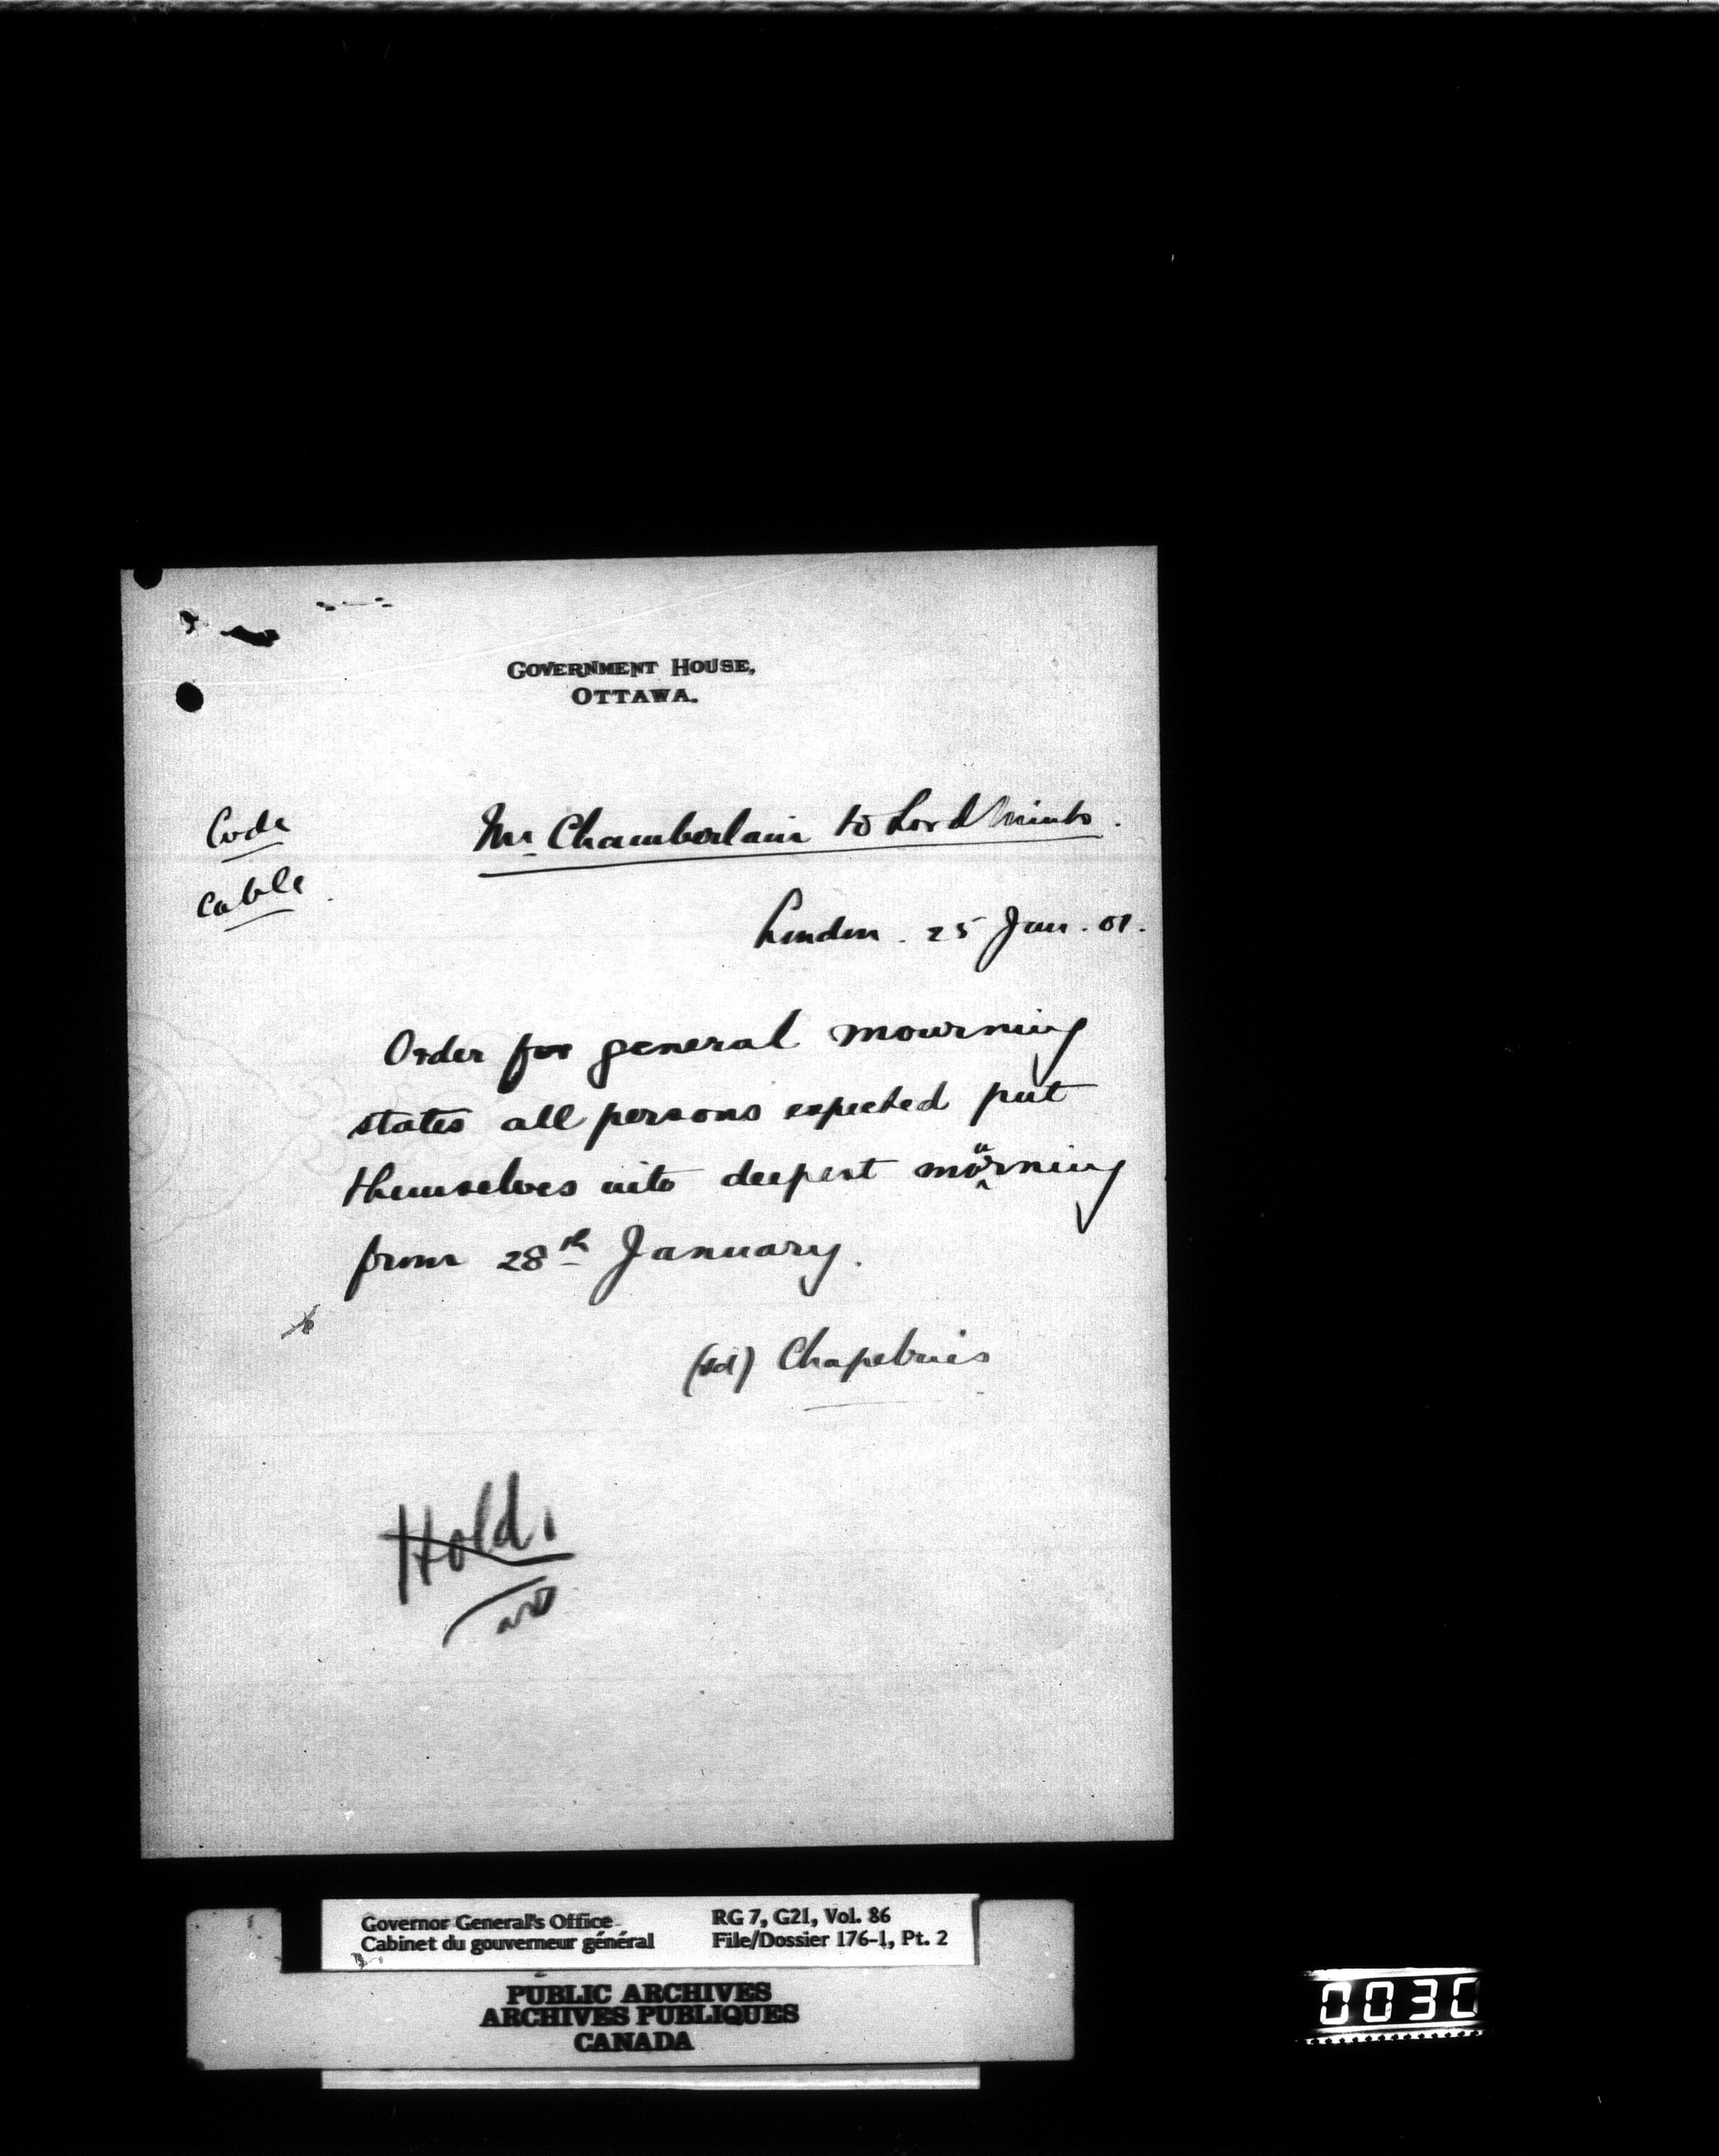 GOVERNMENT HOUSE,
OTTAWA.
Code
Cable.
Mr Chamberlain to Lord Minto.
London. 25 Jan. 01.
Order for general mourning
states all persons expected put
themselves into deepest mourning
from 28th January.
(sd)
Hold.
Governor General's Office
Cabinet du gouverneur général
RG 7, G21, Vol. 86
File/Dossier 176-1, Pt. 2
PUBLIC ARCHIVES
ARCHIVES PUBLIQUES
CANADA
0030